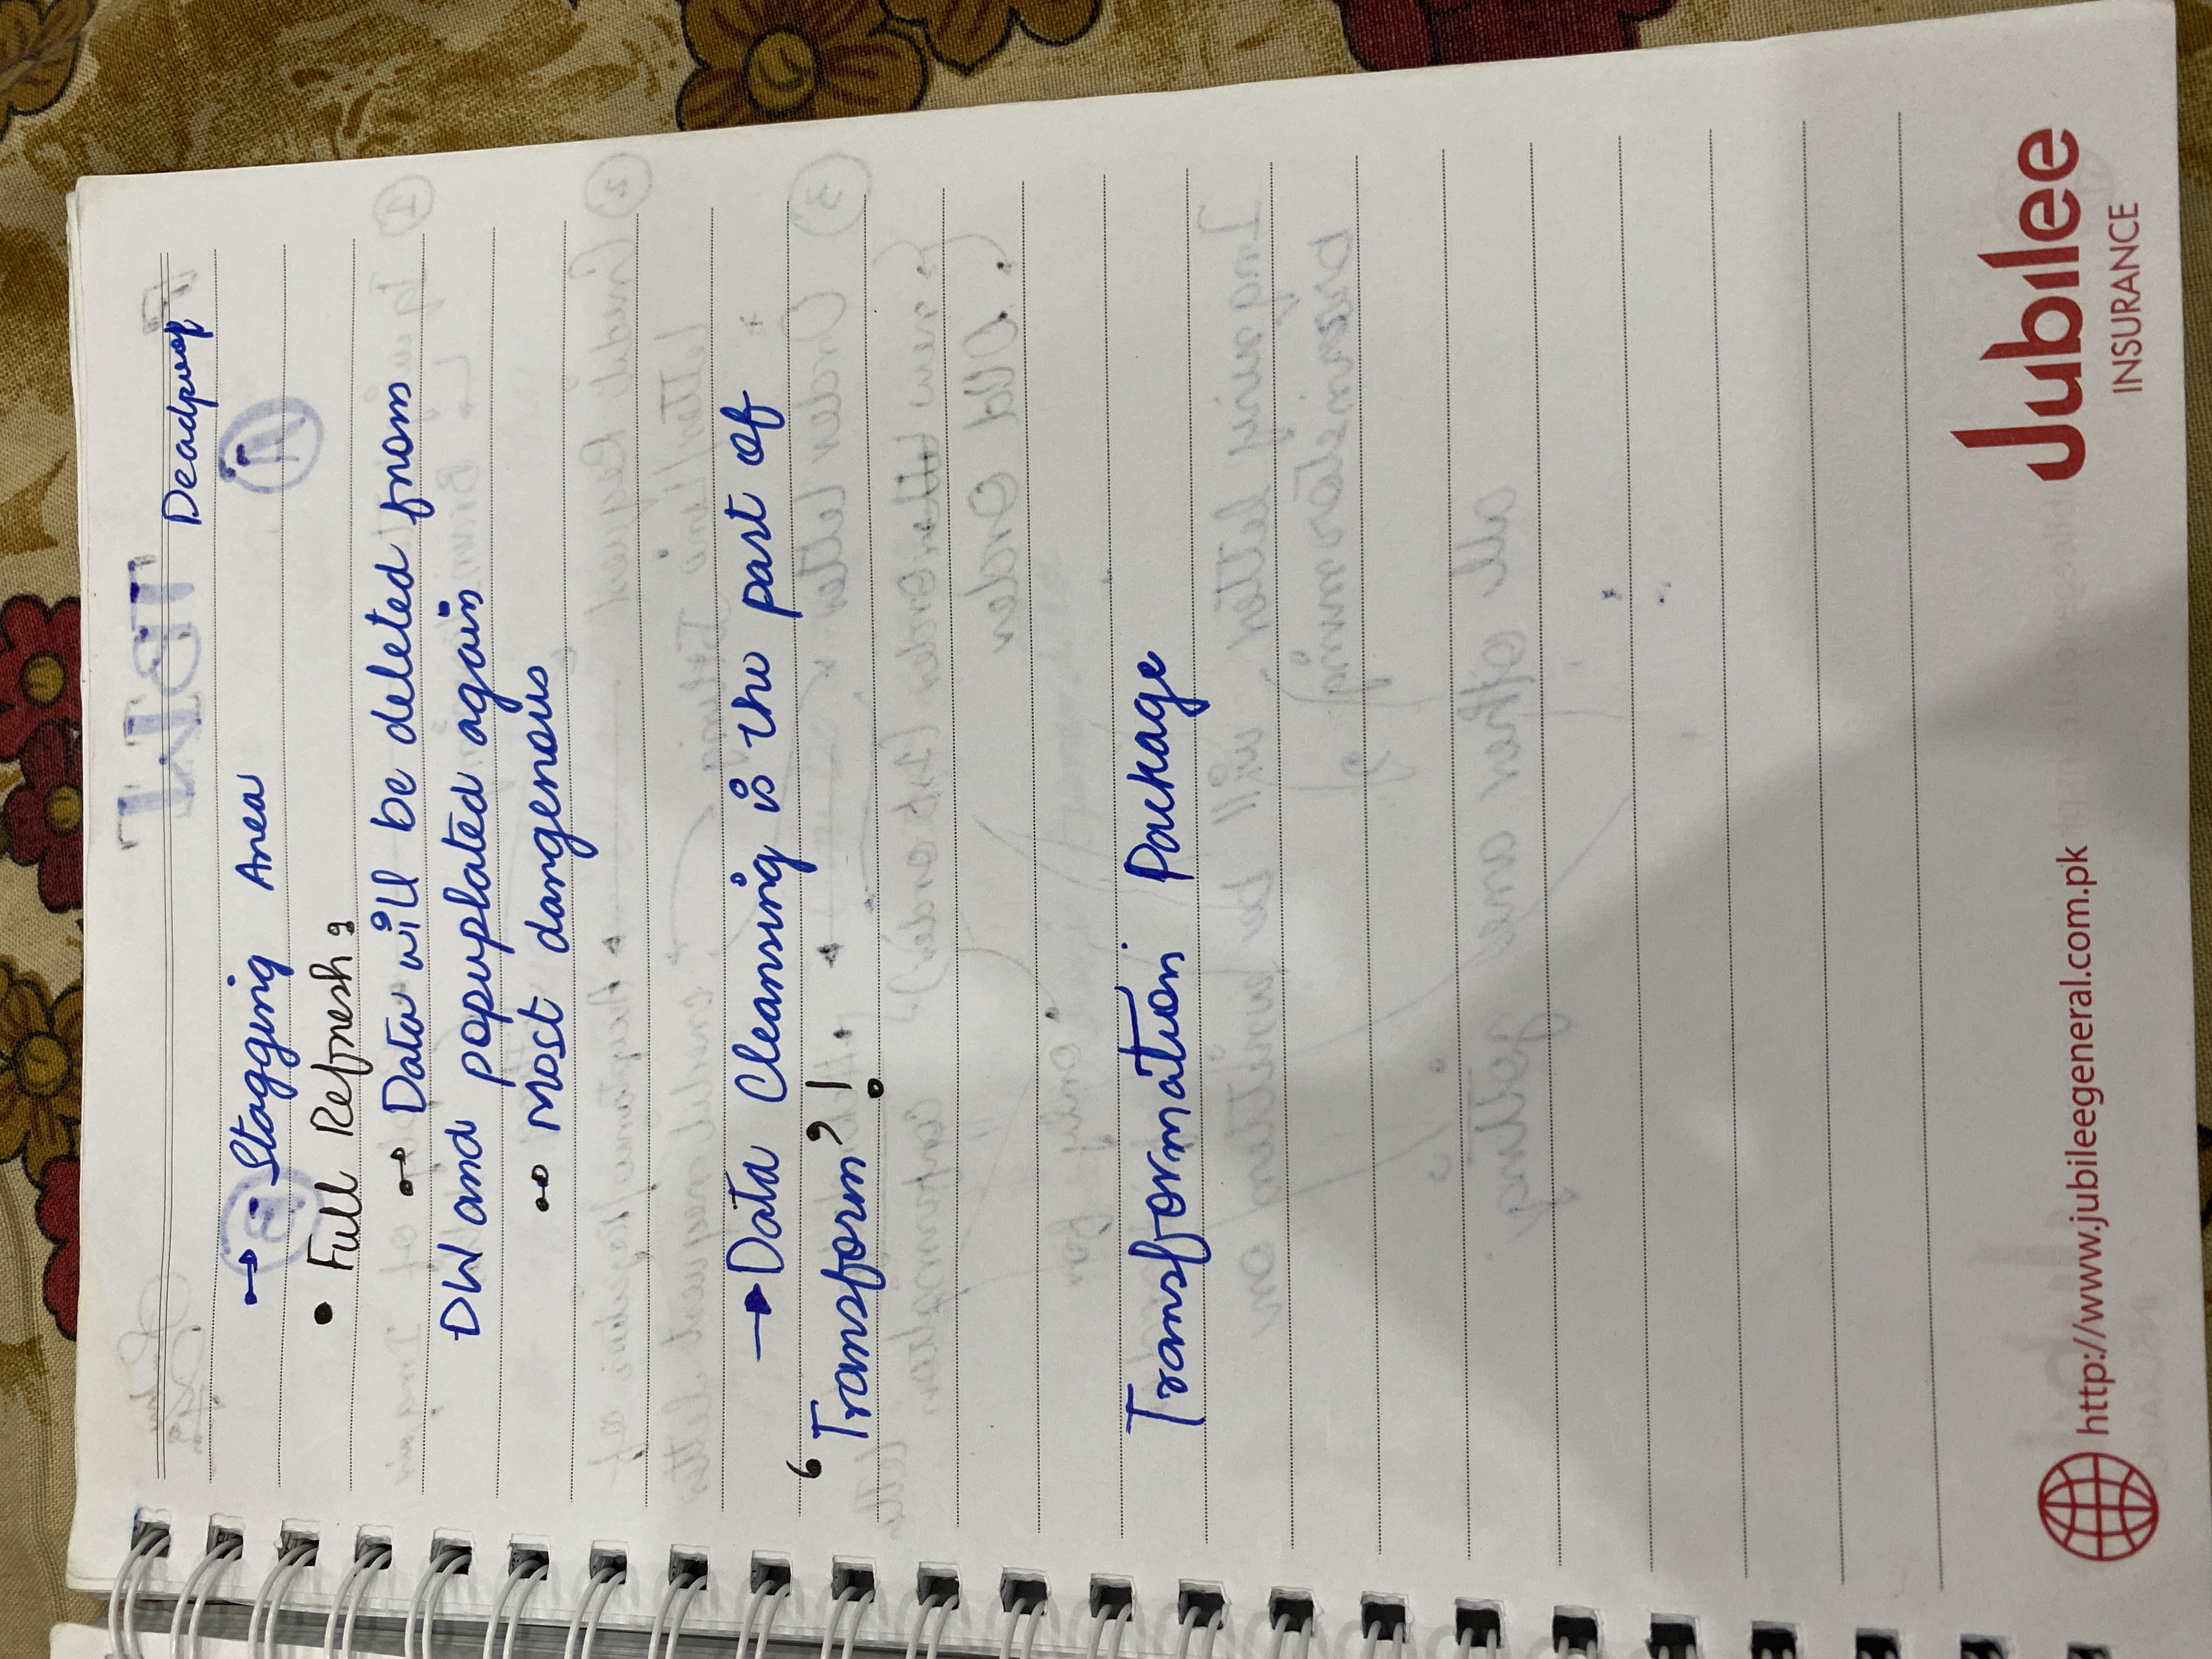 Deadproof
→ - Stagging Area
• Full Refresh:
→ Data will be deleted from
DW and popuplated again
→ Most dangerous
→ Data Cleansing is the part of
‘Transform’!
Transformation Package
http://www.jubileegeneral.com.pk
Jubilee
INSURANCE